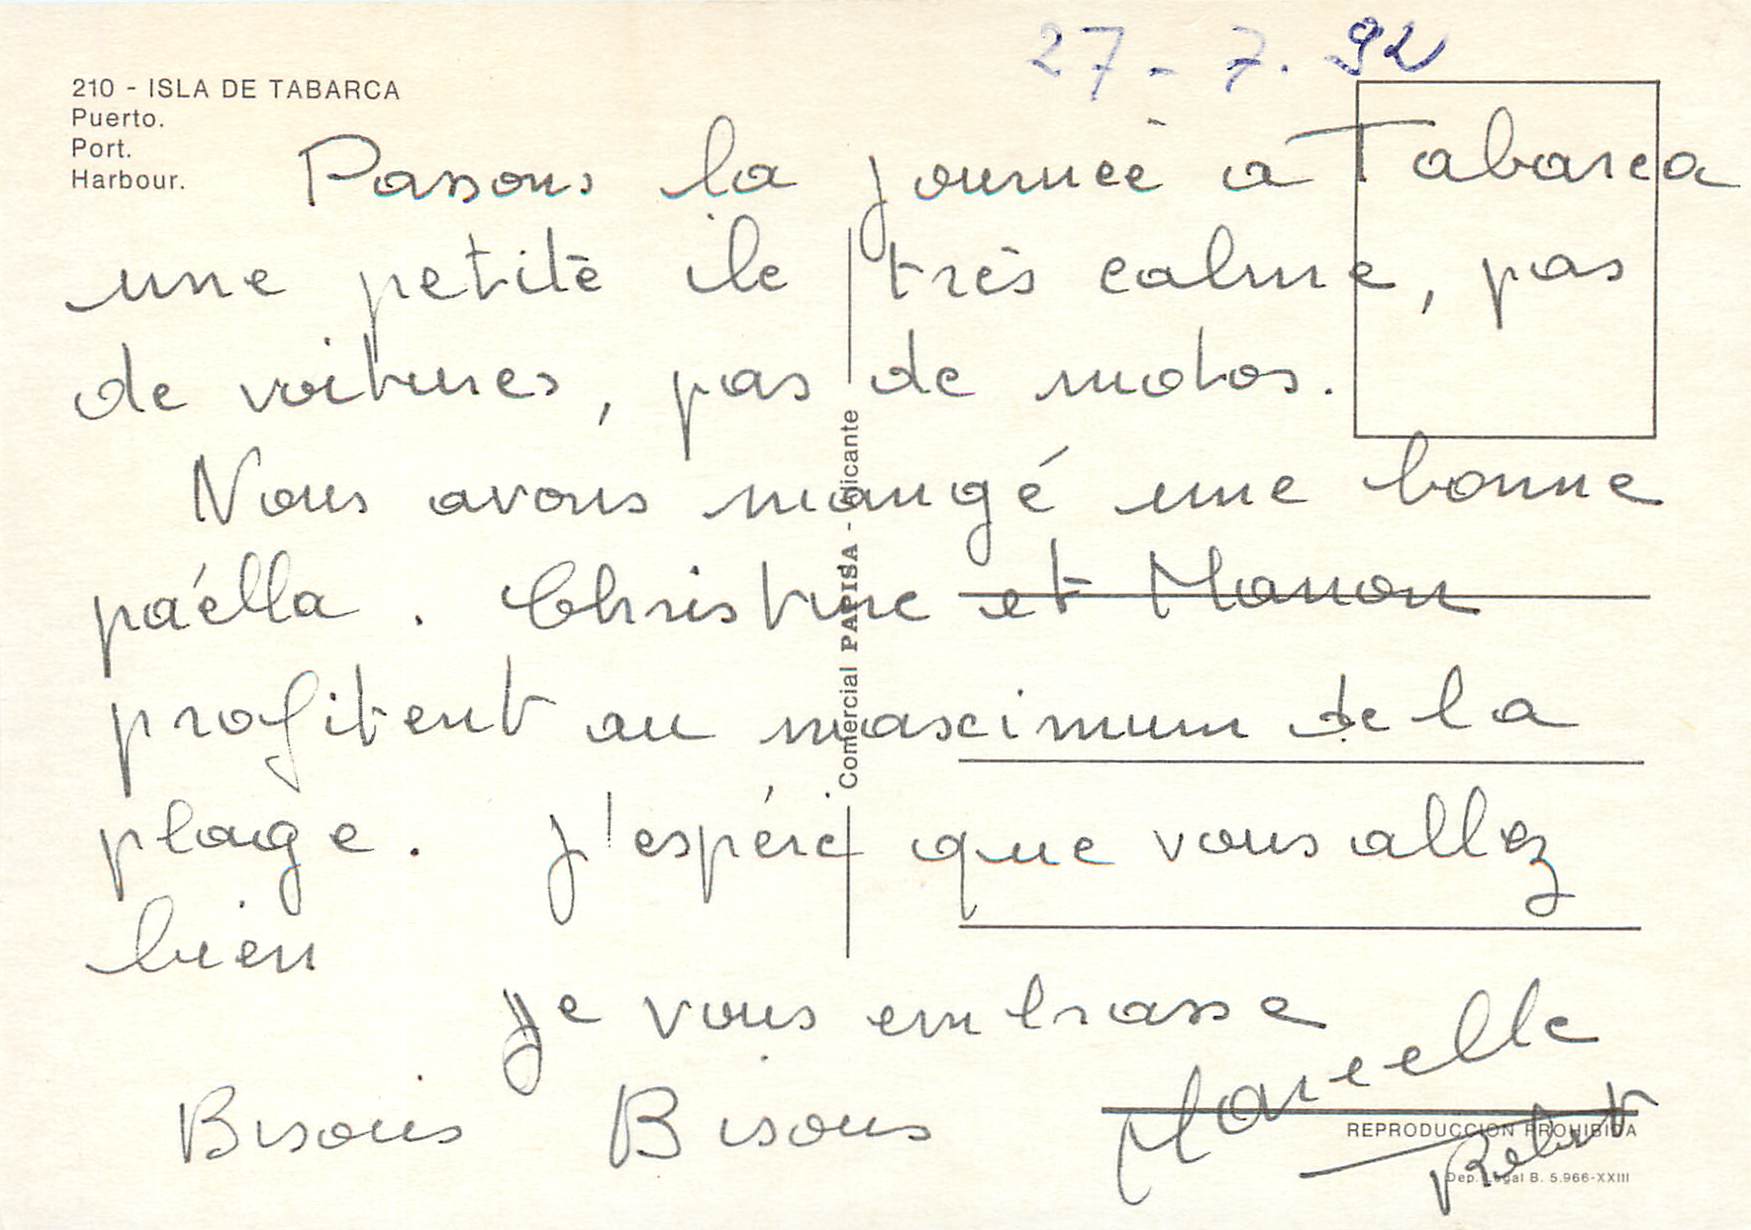 27-7.92
210 - ISLA DE TABARCA
Puerto.
Port.
Harbour.
Passons la journée à Tabarca
une petite ile très calme, pas
de voitures, pas de motos.
Nous avons mangé une bonne
paélla. Christine et Manon
profitent au maximum de la
plage. J'espère que vous allez
bien
Je vous embrasse
Marcelle
Bisous Bisous
Robert
Comercial PAPISA - Alicante
REPRODUCCION PROHIBIDA
Dep. Legal B. 5.966-XXIII